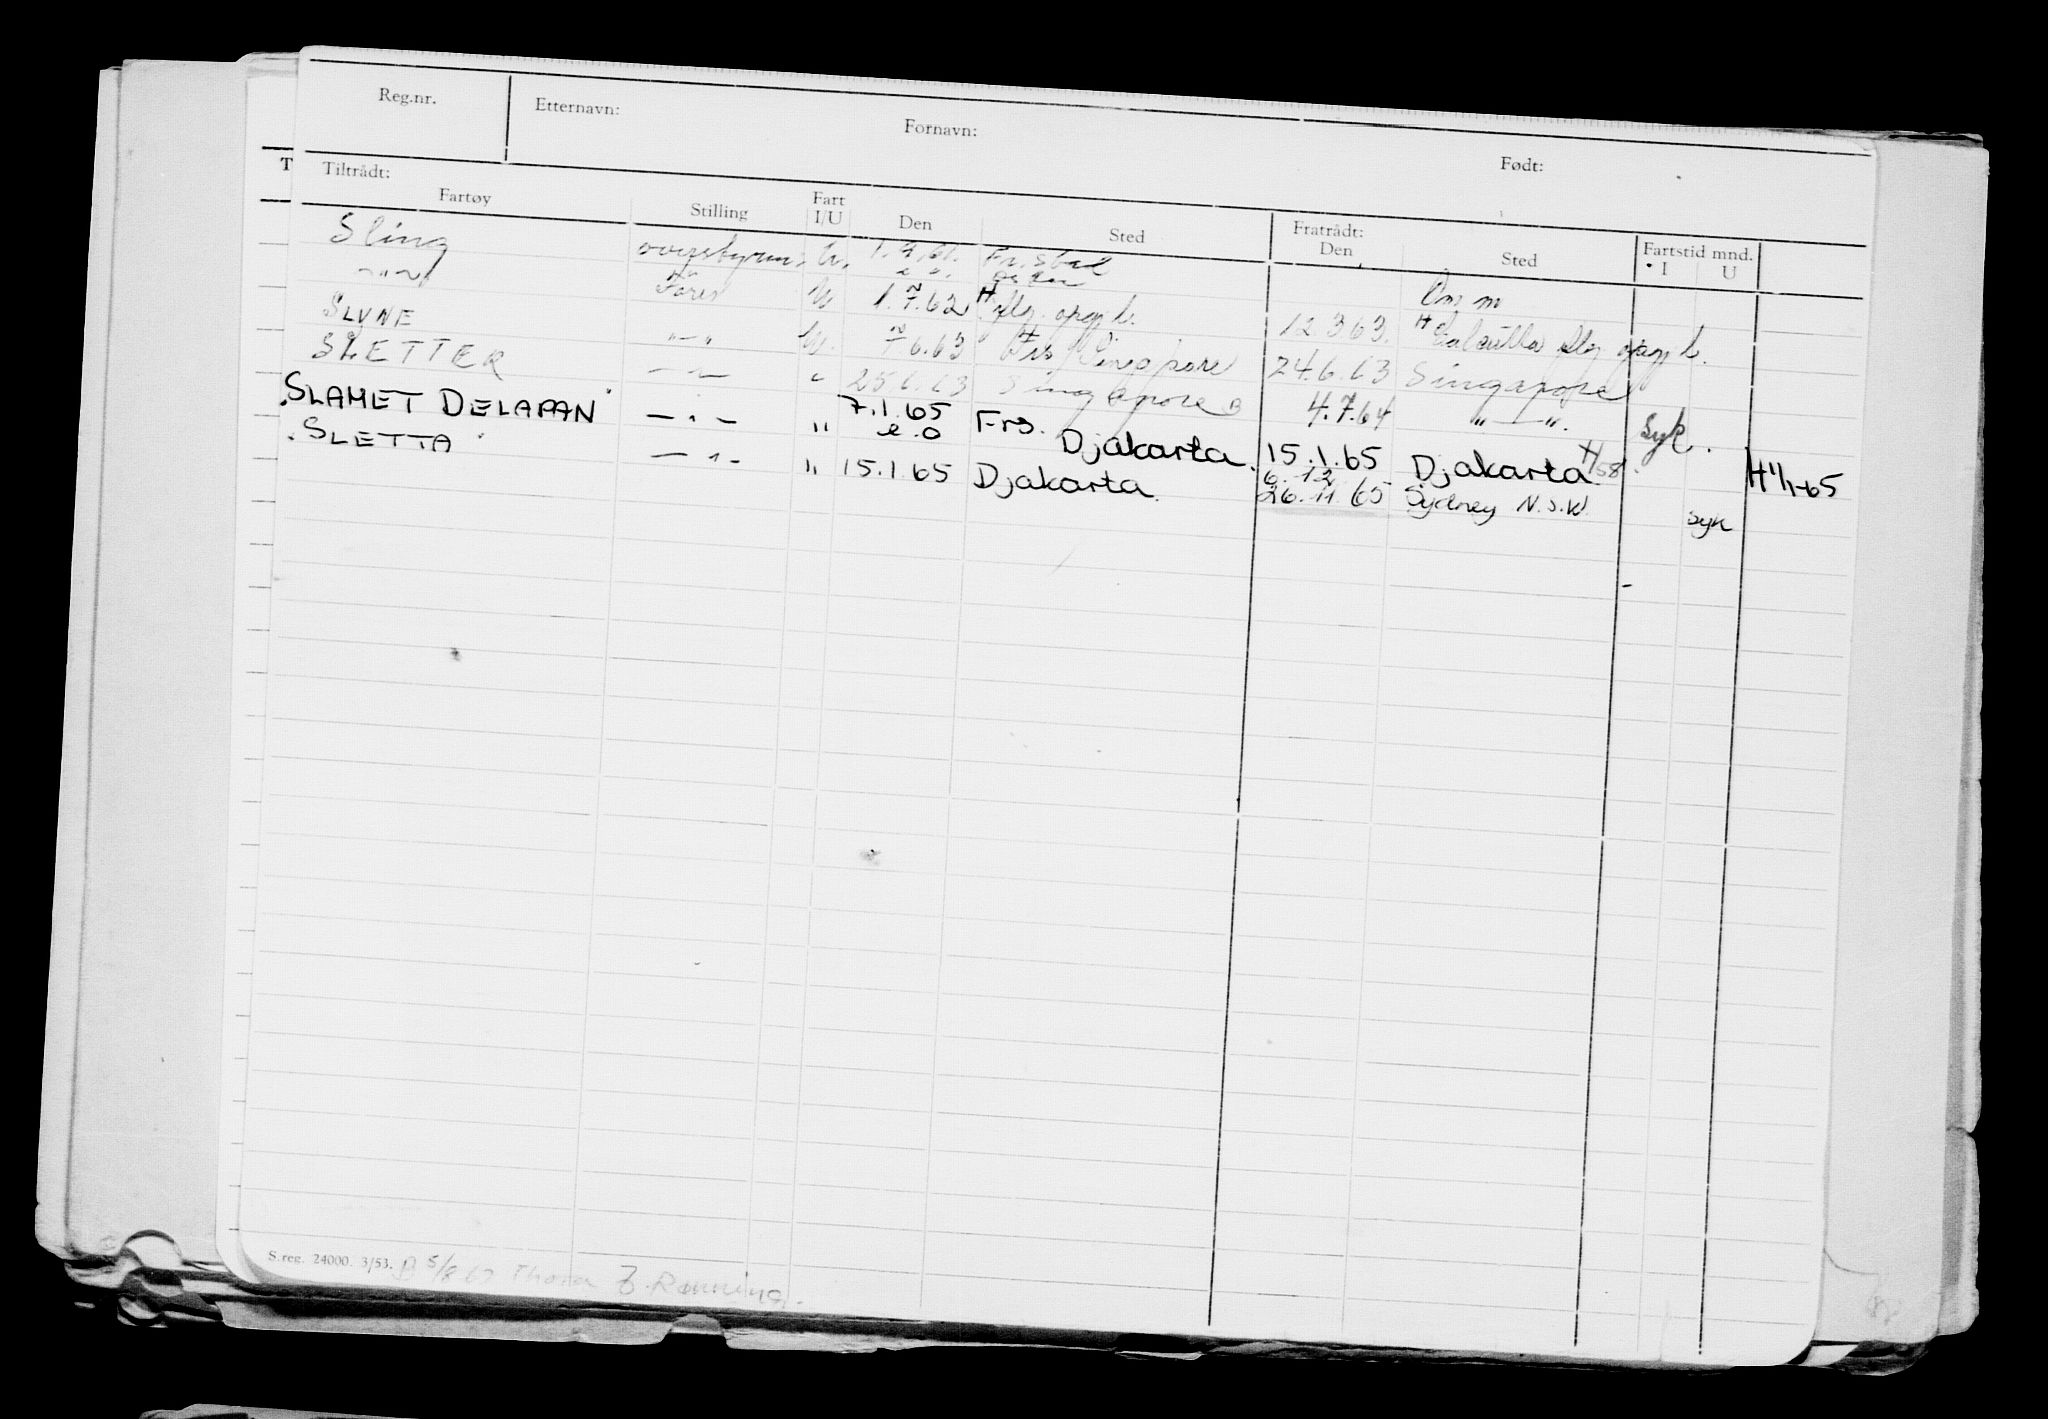 Reg.nr. Etternavn: Fornavn: Født:
T Tiltrådt: Fratrådt:
Fartøy Stilling Fart I/U Den Sted Den Sted Fartstid mnd. I U
Sling overstyrm. U. 1.9.61.
— " — Fører U 1.7.62 H Om m
SLYNE — " — U. 7.6.63 Frs Singapore 12.3.63. H Calcutta
SLETTER — " — " 25.6.63 Singapore 24.6.63 Singapore
SLAMET DELAPAN — " — " 7.1.65 e.o Frs. Djakarta. 4.7.64 — " — Syk.
SLETTA — " — " 15.1.65 Djakarta. 15.1.65 Djakarta H/58. H 1/1-65
6.12
26.11.65 Sydney N.S.W. Syk
S.reg. 24000. 3/53. Rønning.